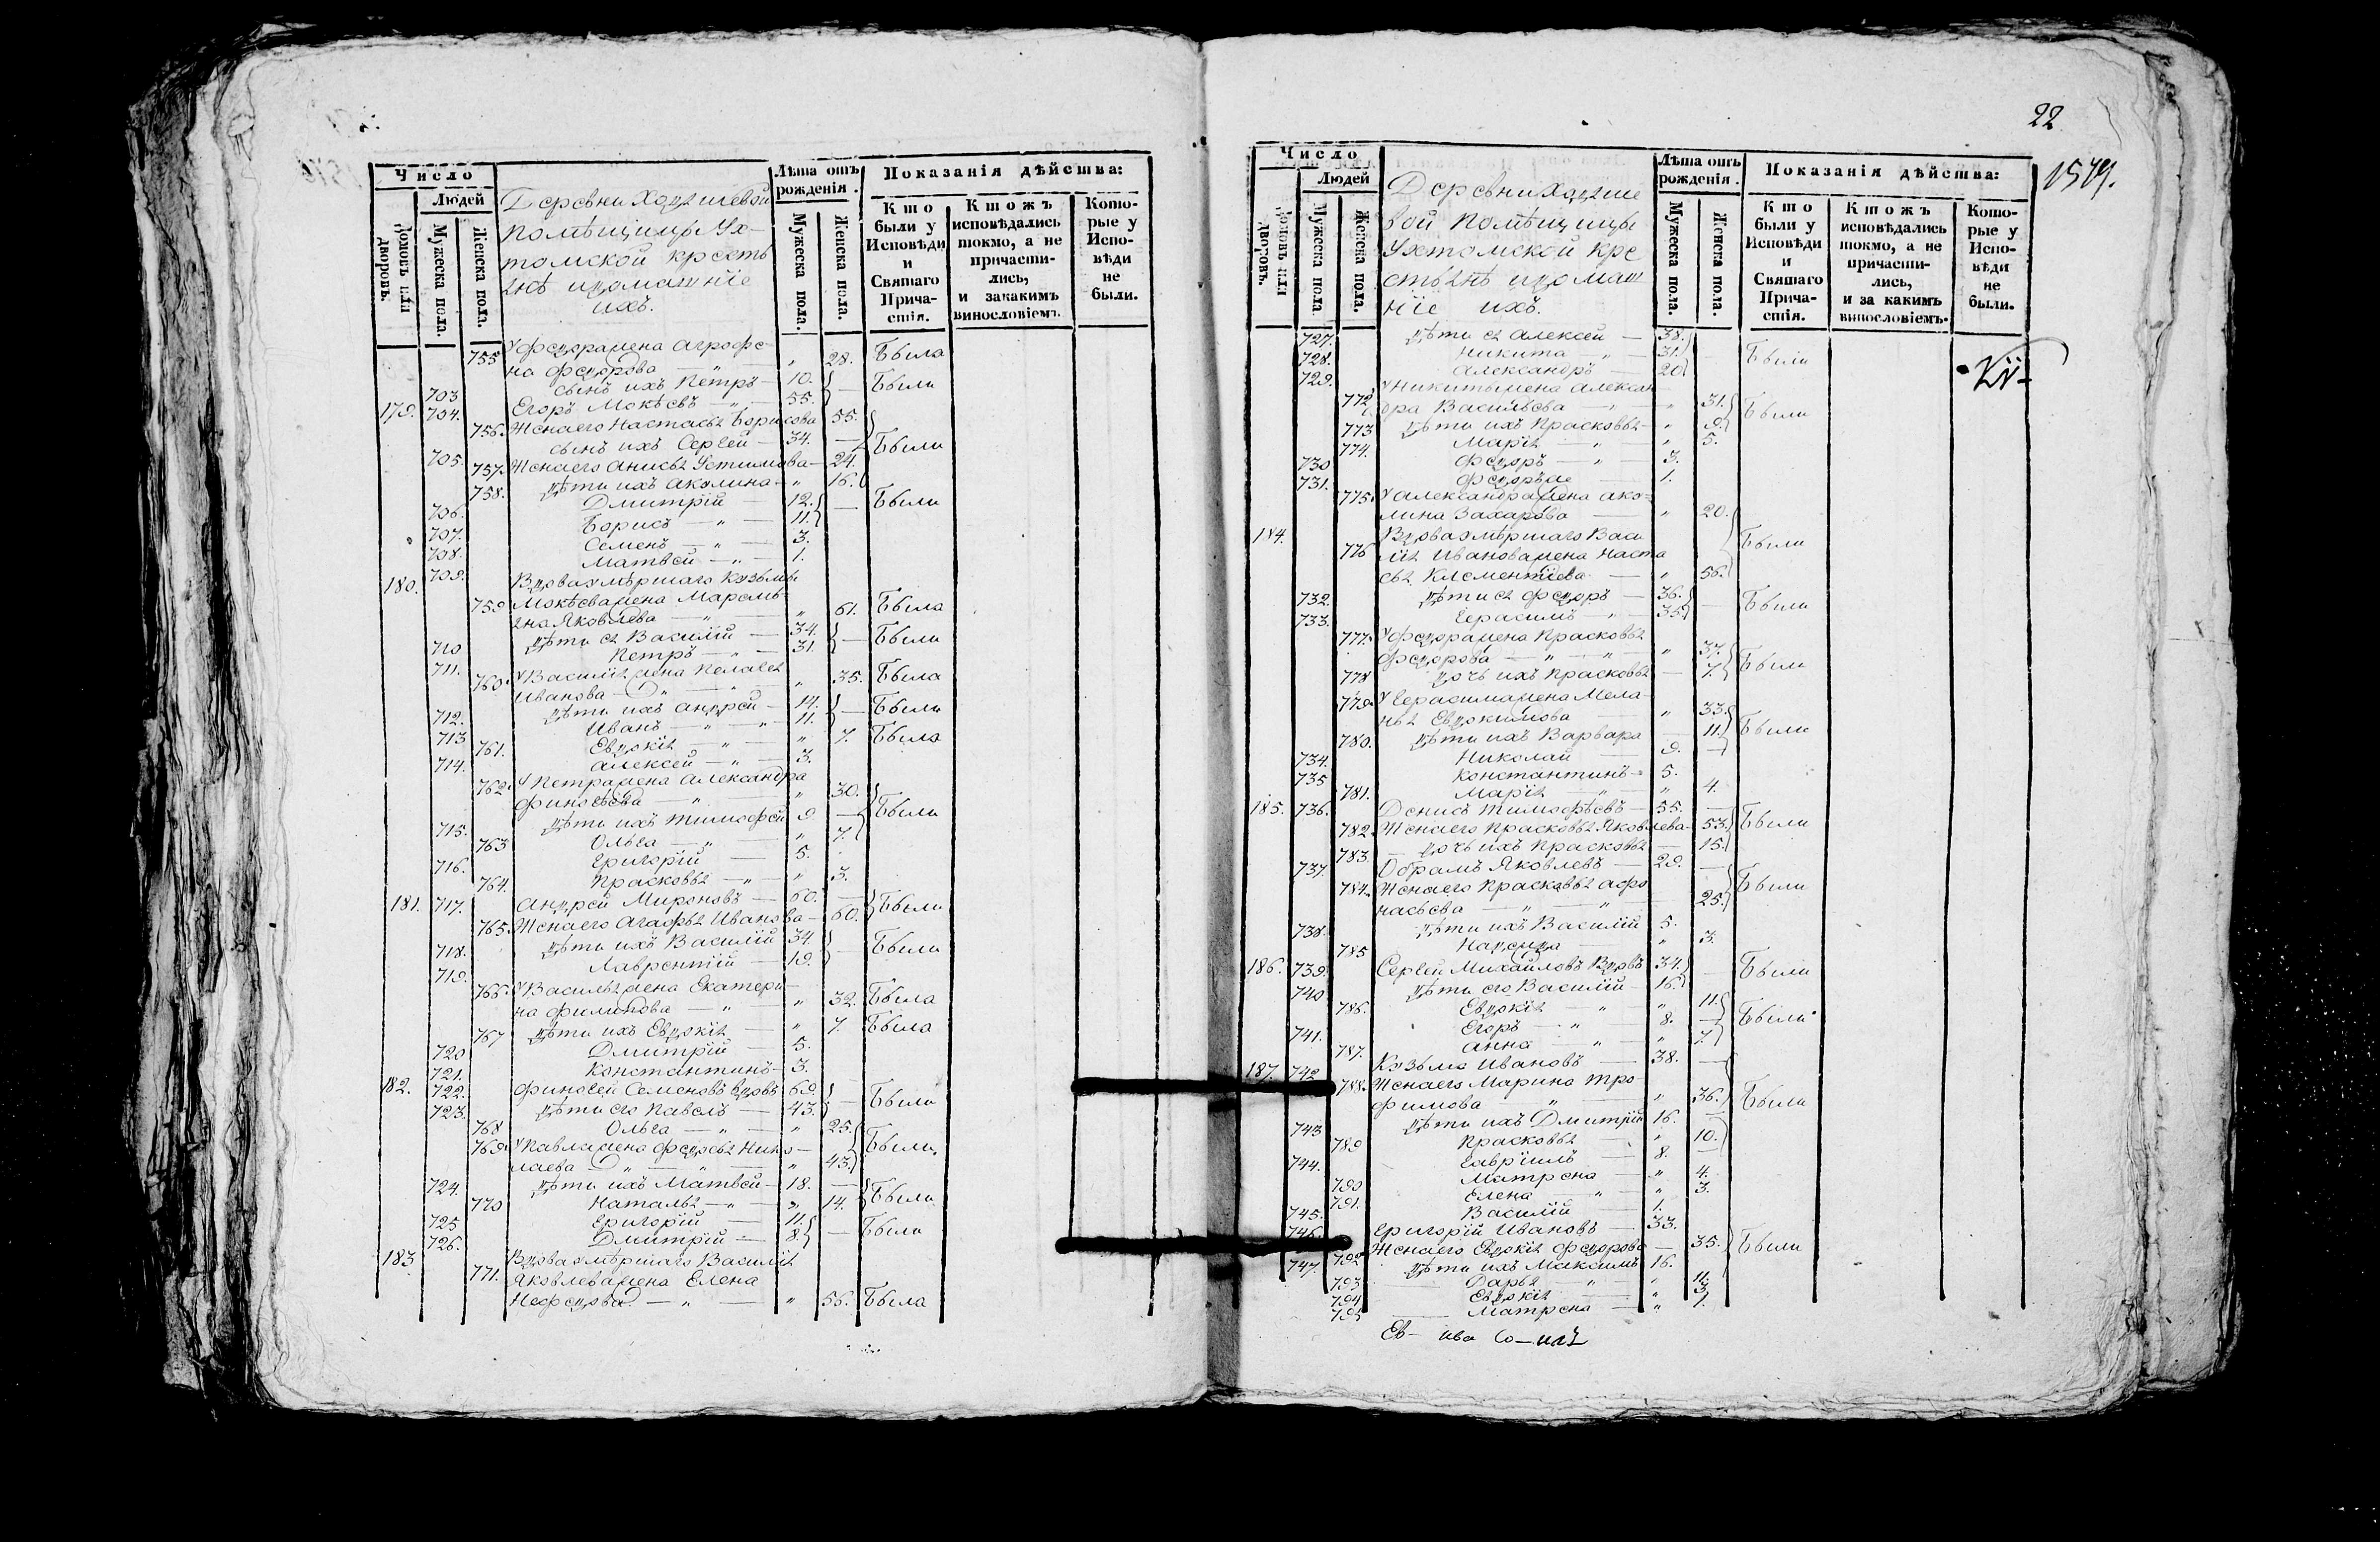 Число
Людей
Домовъ или дворовъ.
Мужеска пола.
Женска пола.
Деревни Ходяшевой
помѣщицы Ух-
томской крестъ
янѣ идомашніе
ихъ.
Лѣта отъ рожденія.
Мужеска пола.
Женска пола.
Показанія дѣйства:
Кто были у Исповѣди и Святаго Прича-стія.
Ктожъ исповѣдались токмо, а не причасти-лись, и закакимъ винословіемъ.
Кото-рые у Испо-вѣди не были.
755 Уфедоражена Агрофе-
на Федорова — " 28. Была
703 сынъ ихъ Петръ — 10. Были
179. 704. Егоръ Мокѣевъ — " — 55.
756. Женаего Настасья Борисова 55.
705. сынъ ихъ Сергей — 34. — Были
757. Женаего Анисья Устинова — 24.
758. дѣти ихъ Аколина — " 16.
706. Дмитрій — 12. — Были
707. Борисъ — " — 11.
708. Семенъ — " — 3.
709. Матвей — " — 1.
180. Вдоваумѣршаго Кузьмы
759 Мокѣеважена Маремь-
яна Яковлева — " 61. Была
710 дѣти ея Василій — 34. — Были
711. Петръ — " — 31.
760. УВасиліяжена Пелагея
Иванова — " — " 35. Была
712. дѣти ихъ Андрей — 14. — Были
713 Иванъ — " — 11.
761. Евдокія — " — " 7. Была
714. Алексей — " — 3.
762. УПетражена Александра
Финогѣева — " — " 30.
715. дѣти ихъ Тимофей 9. — Были
763 Ольга — " — " 7.
716. Григорій — 5.
764. Прасковья — " — " 3.
181. 717. Андрей Мироновъ — 60. — Были
765. Женаего Агафья Иванова — 60.
718. дѣти ихъ Василій 34. — Были
719. Лаврентій — 19.
766. УВасильяжена Екатери-
на Филипова — " — " 32. Была
767 дѣти ихъ Евдокія — " 7. Была
720 Дмитрій — 5.
721. Константинъ — 3.
182. 722. Финогей Семеновъ вдовъ 69. — Были
723. дѣти его Павелъ — 43.
768 Ольга — " — " 25.
769. УПавлажена Федосья Нико-
лаева — " — " — " 43. Были
724. дѣти ихъ Матвей — 18. —
770 Наталья — " — " 14. Были
725 Григорій — 11. — Были
726. Дмитрій — 8.
183 Вдоваумѣршаго Василія
771. Яковлеважена Елена
Нефедова — " — " 56. Была
22
1579.
Число
Людей
Домовъ или дворовъ.
Мужеска пола.
Женска пола.
Деревни Ходяше
вой помѣщицы
Ухтомской кре
стьянѣ идомаш
ніе ихъ.
Лѣта отъ рожденія.
Мужеска пола.
Женска пола.
Показанія дѣйства:
Кто были у Исповѣди и Святаго Прича-стія.
Ктожъ исповѣдались токмо, а не причасти-лись, и за какимъ винословіемъ.
Кото-рые у Испо-вѣди не были.
727. дѣти ея Алексей — 38.
728. Никита — " — 31. Были
729. Александръ — 20.
772 УНикитыжена Алексан
дра Васильева — " — " 31. Были
773 дѣти ихъ Прасковья — " 9.
774. Марія — " — " 5.
730 Федоръ — " — 3.
731. Федоръже — 1.
775. УАлександражена Ако-
лина Захарова — " 20.
184. Вдоваумѣршаго Васи
776 лія Ивановажена Наста
сья Клементіева — " 56. Были
732. дѣти ея Федоръ — 36. — Были
733. Герасимъ — " — 35.
777. УФедоражена Прасковья
Федорова — " — " — " 37. Были
778 дочь ихъ Прасковья — 7.
779. УГерасимажена Мела-
нья Евдокимова " 33.
780. дѣти ихъ Варвара — 11. Были
734. Николай — 9. —
735 Константинъ — 5.
781. Марія — " — " 4.
185. 736. Денисъ Тимофѣевъ — 55. —
782. Женаего Прасковья Яковлева — 53. Были
783. — дочь ихъ Прасковья — 15.
737. Обрамъ Яковлевъ — 29. —
784. Женаего Прасковья Афо
насьева — " — " — 25. Были
738. дѣти ихъ Василій 5.
785 Надежда — " 3.
186. 739. Сергей Михайловъ Вдовъ 34. — Были
740 дѣти его Василій — 16.
786. Евдокія — " — " 11.
741. Егоръ — " 8. — Были
787. Анна — " — " 7.
187. 742 Кузьма Ивановъ — 38. —
788. Женаего Марина Тро-
фимова " — " 36. Были
743 дѣти ихъ Дмитрій 16. —
789 Прасковья — " 10.
744. Гаврiилъ — 8. —
790 Матрена — " 4.
791. Елена — " — " 3.
745. Василій — 1.
746. Григорій Ивановъ — 33.
792 Женаего Евдокія Федорова — 35. Были
747. дѣти ихъ Максимъ 16.
793 Дарья — " — " 11.
794 Евдокія — "
795 Матрена — " 1.